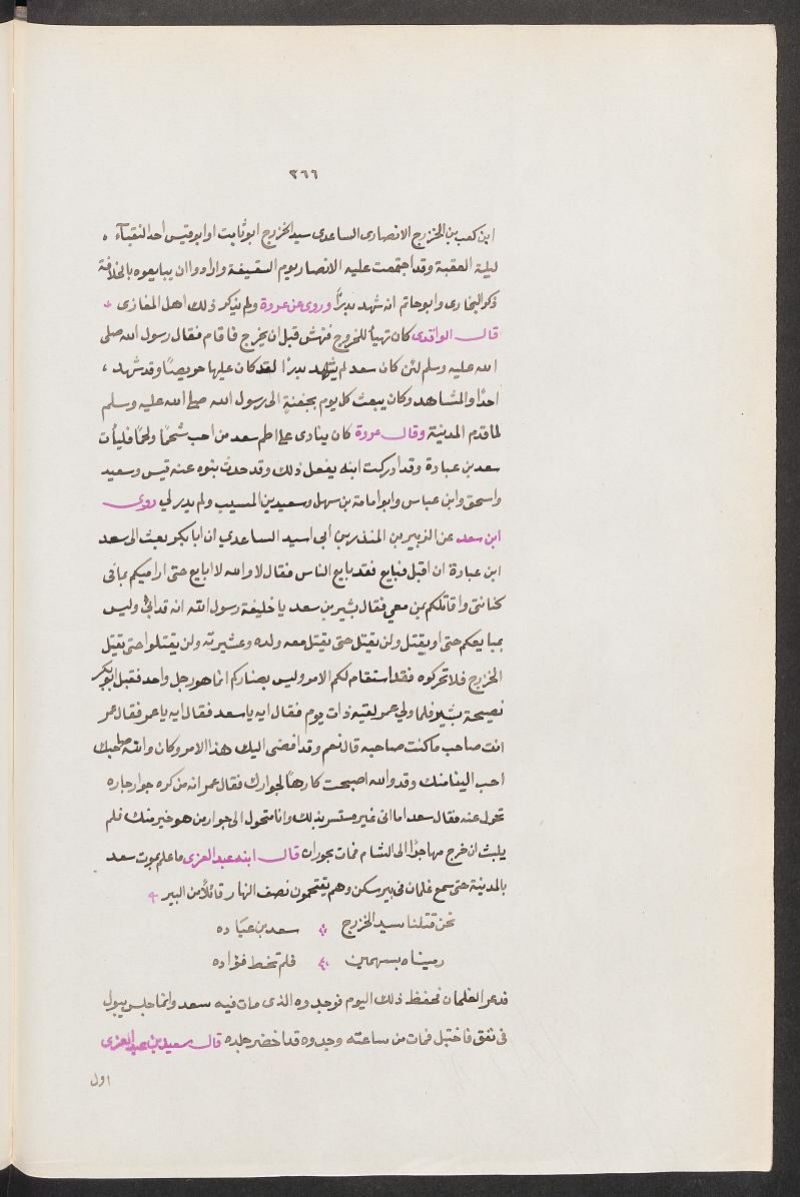 ٣٦٦
ابن كعب بن الخزرج الانصارى الساعدى سيد الخزرج ابو ثابت او ابو قيس احد النقباء ،
ليلة العقبة وقد اجتمعت عليه الانصار يوم السقيفة وارادوا ان يبايعوه بالخلافة
ذكر البخارى وابو حاتم انه شهد بدرًا وروى عن عروة ولم يذكر ذلك اهل المغازى
قال الواقدى كان تهيأ للخروج فنهش قبل ان يخرج فاقام فقال رسول الله صلى
الله عليه وسلم لئن كان سعد لم يشهد بدرًا لقد كان عليها حريصًا وقد شهد ،
احدًا والمشاهد وكان يبعث كل يوم بجفنةٍ الى رسول الله صلى الله عليه وسلم
لما قدم المدينة وقال عروة كان ينادى على اطم سعد من احب شحمًا ولحمًا فليأت
سعد بن عبادة وقد ادركت ابنه يفعل ذلك وقد حدث بنوه عنه قيس وسعيد
واسحق وابن عباس وابو امامة بن سهل وسعيد بن المسيب ولم يدر لي روى
ابن سعد عن الزبير بن المنذر بن أبى اسيد الساعدي ان ابا بكر بعث الى سعد
ابن عبادة ان اقبل فبايع فقد بايع الناس فقال لا والله لا ابايع حتى اراميكم بما فى
كنانتى واقاتلكم بمن معي فقال بشير بن سعد يا خليفة رسول الله انه قد ابى وليس
بمبايعكم حتى او يقتل ولن يقتل حتى يقتل معه ولده وعشيرته ولن يقتلوا حتى يقتل
الخزرج فلا تحركوه فقد استقام لكم الامر وليس بضاركم انما هو رجل واحد فقبل ابو بكر
نصيحة بشير فلما ولي عمر لقيه ذات يوم فقال ايه يا سعد فقال ايه يا عمر فقال عمر
انت صاحب ما كنت صاحبه قال نعم وقد افضى اليك هذا الامر وكان والله صاحبك
احب الينا منك وقد والله اصبحت كارهًا لجوارك فقال عمر انه من كره جوار جاره
تحول عنه فقال سعد اما انى غير مستسر بذلك وانا متحول الى جوار من هو خير منك فلم
يلبث ان خرج مهاجرًا الى الشام فمات بحوران قال ابنه عبد العزى ما علم بموت سعد
بالمدينة حتى سمع غلمان فى بير سكن وهم يقتحمون نصف النهار قائلاً من البير
نحن قتلنا سيد الخزرج سعد بن عباده
رميناه بسهمين فلم تخط فؤاده
فدعر الغلمان فحفظ ذلك اليوم فوجدوه الذى مات فيه سعد وانما جلس يبول
فى نفق فاختبل فمات من ساعته وجدوه قد اخضر جلده قال سعيد بن عبد العزى
اول